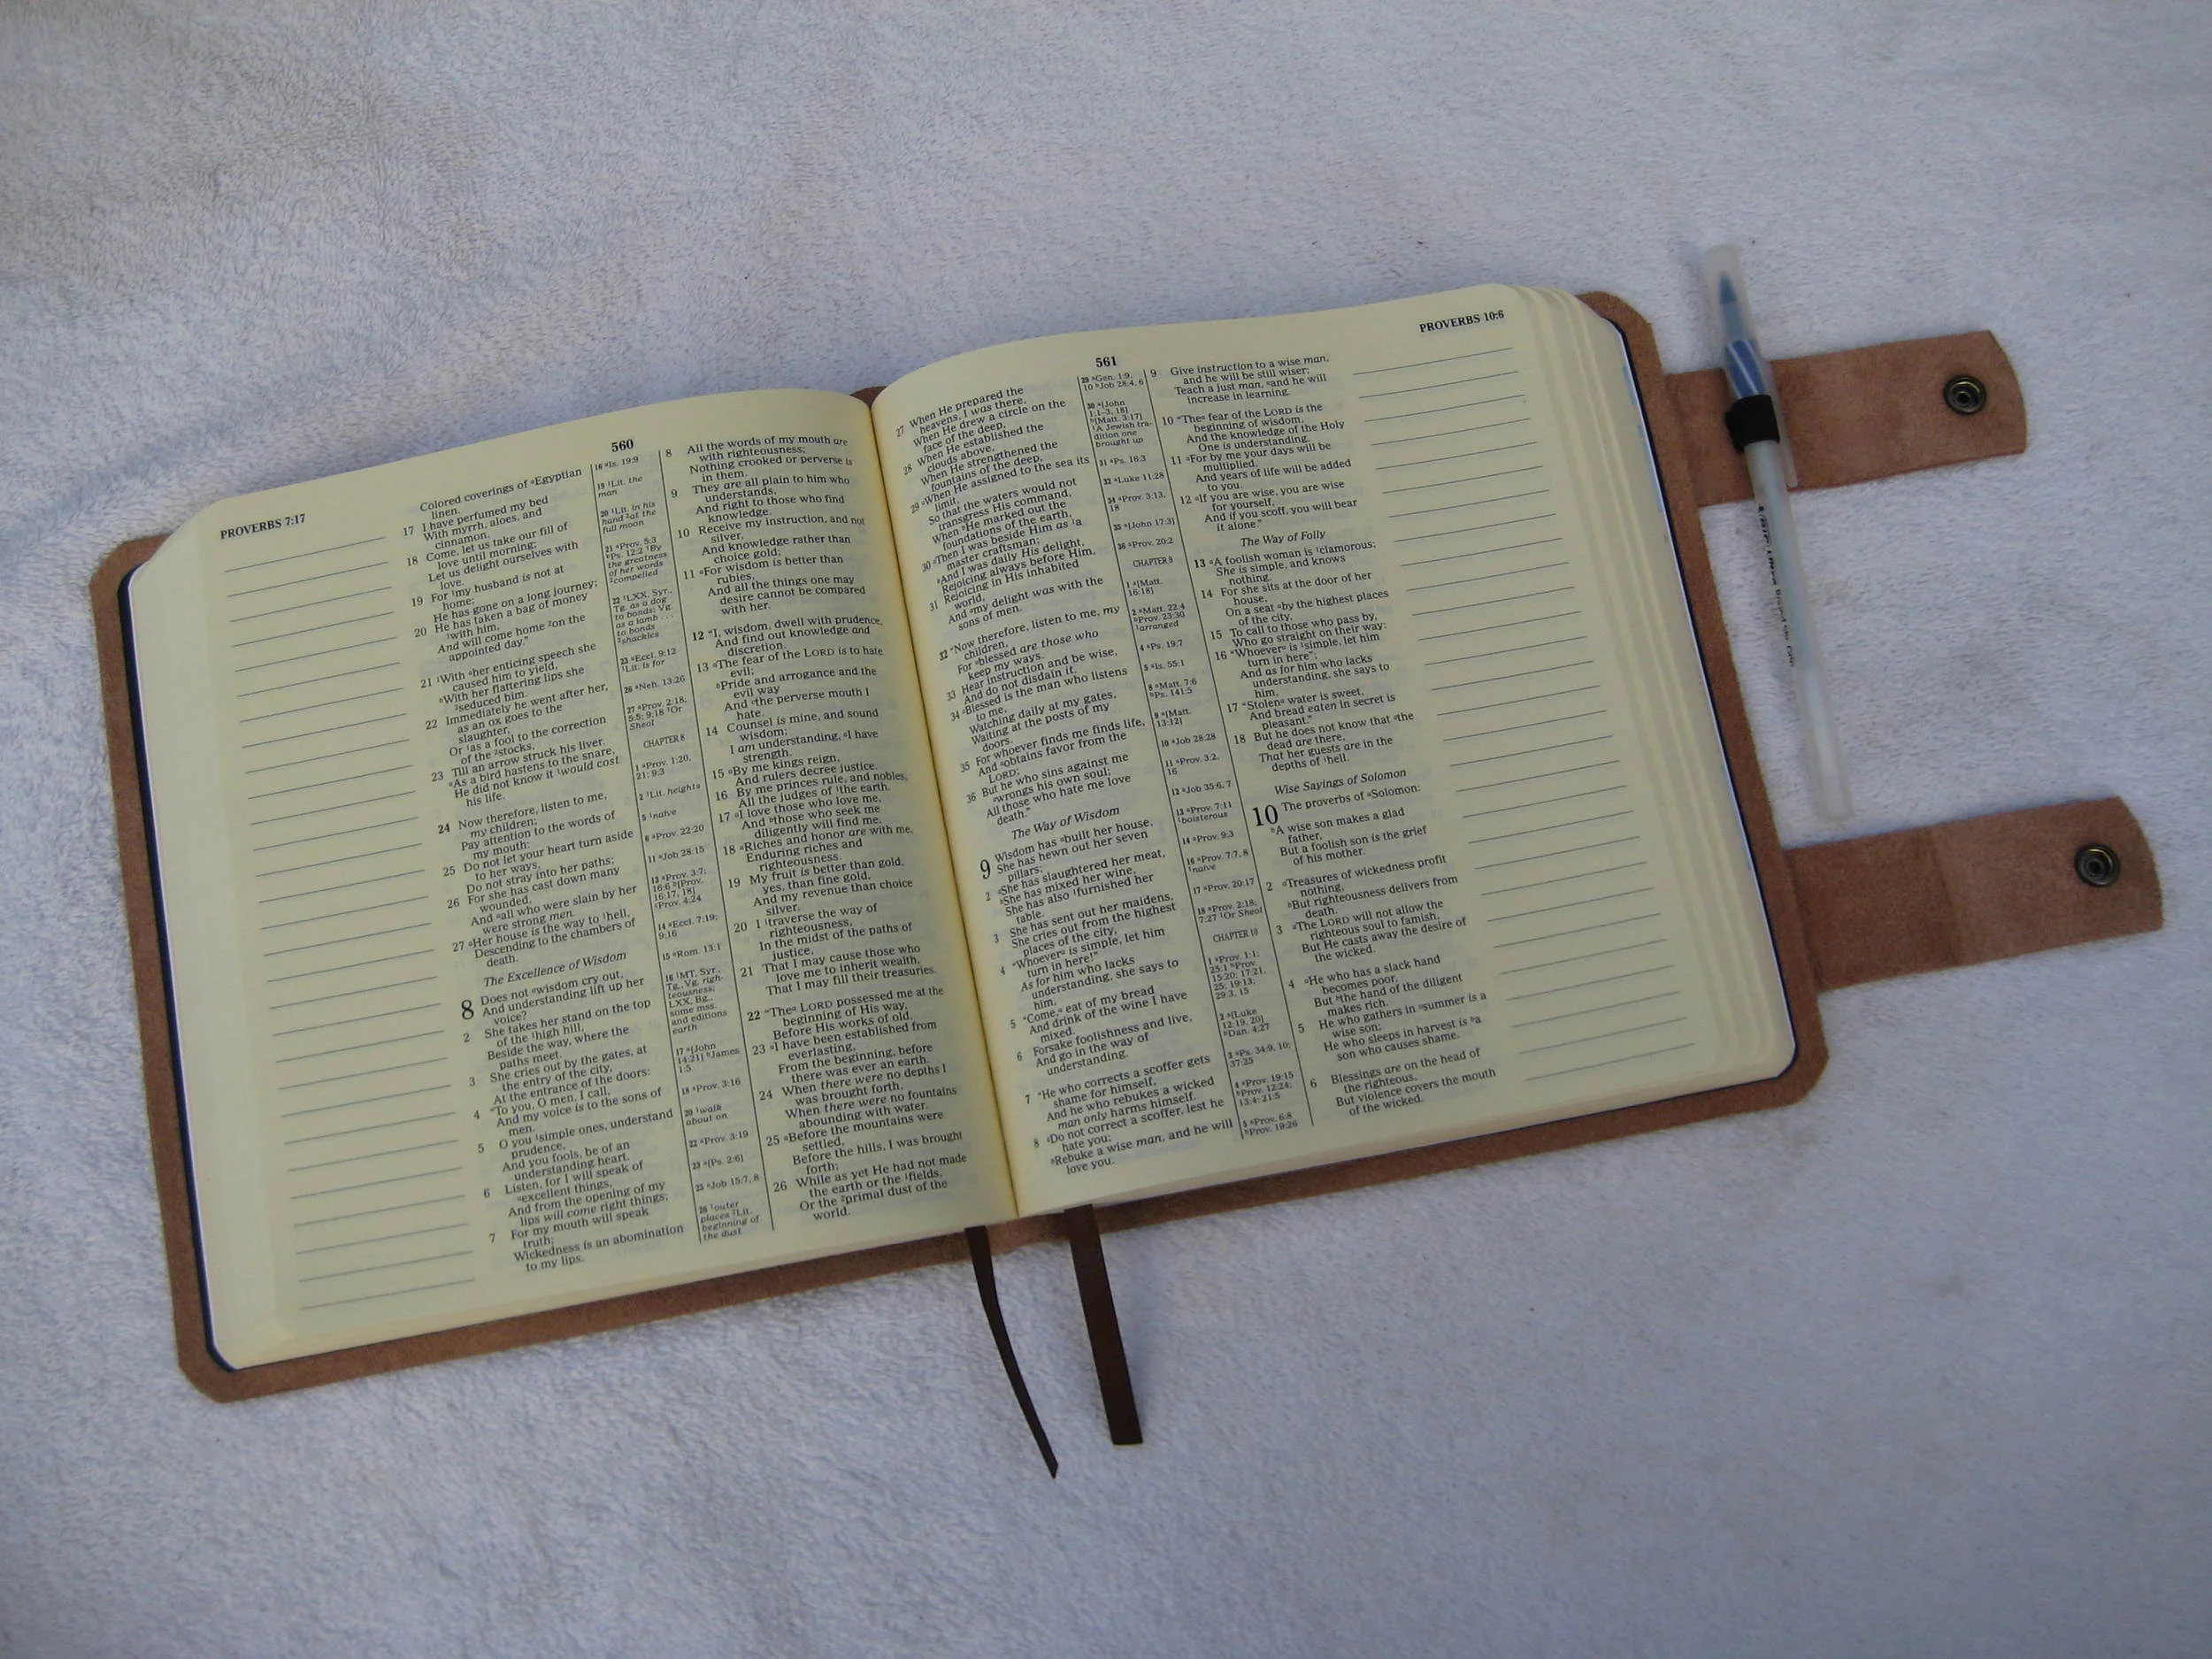 PROVERBS 7:17
560
Colored coverings of aEgyptian
linen.
17 I have perfumed my bed
With myrrh, aloes, and
cinnamon.
18 Come, let us take our fill of
love until morning;
Let us delight ourselves with
love.
19 For 1my husband is not at
home;
He has gone on a long journey;
20 He has taken a bag of money
1with him,
And will come home 2on the
appointed day."
21 1With aher enticing speech she
caused him to yield,
bWith her flattering lips she
2seduced him.
22 Immediately he went after her,
as an ox goes to the
slaughter,
Or 1as a fool to the correction
of the 2stocks,
23 Till an arrow struck his liver.
aAs a bird hastens to the snare,
He did not know it 1would cost
his life.
24 Now therefore, listen to me,
my children;
Pay attention to the words of
my mouth:
25 Do not let your heart turn aside
to her ways,
Do not stray into her paths;
26 For she has cast down many
wounded,
And aall who were slain by her
were strong men.
27 aHer house is the way to 1hell,
Descending to the chambers of
death.
The Excellence of Wisdom
8 Does not awisdom cry out,
And understanding lift up her
voice?
2 She takes her stand on the top
of the 1high hill,
Beside the way, where the
paths meet.
3 She cries out by the gates, at
the entry of the city,
At the entrance of the doors:
4 "To you, O men, I call,
And my voice is to the sons of
men.
5 O you 1simple ones, understand
prudence,
And you fools, be of an
understanding heart.
6 Listen, for I will speak of
aexcellent things,
And from the opening of my
lips will come right things;
7 For my mouth will speak
truth;
Wickedness is an abomination
to my lips.
16 aIs. 19:9
19 1Lit. the
man
20 1Lit. in his
hand 2at the
full moon
21 aProv. 5:3
bPs. 12:2 1By
the greatness
of her words
2compelled
22 1LXX, Syr.,
Tg. as a dog
to bonds; Vg.
as a lamb . . .
to bonds
2shackles
23 aEccl. 9:12
1Lit. is for
26 aNeh. 13:26
27 aProv. 2:18;
5:5; 9:18 1Or
Sheol
CHAPTER 8
1 aProv. 1:20,
21; 9:3
2 1Lit. heights
5 1naive
6 aProv. 22:20
11 aJob 28:15
13 aProv. 3:7;
16:6 b[Prov.
16:17, 18]
cProv. 4:24
14 aEccl. 7:19;
9:16
15 aRom. 13:1
16 1MT, Syr.,
Tg., Vg. righ-
teousness;
LXX, Bg.,
some mss.
and editions
earth
17 a[John
14:21] bJames
1:5
18 aProv. 3:16
20 1walk
about on
22 aProv. 3:19
23 a[Ps. 2:6]
25 aJob 15:7, 8
26 1outer
places 2Lit.
beginning of
the dust
8 All the words of my mouth are
with righteousness;
Nothing crooked or perverse is
in them.
9 They are all plain to him who
understands,
And right to those who find
knowledge.
10 Receive my instruction, and not
silver,
And knowledge rather than
choice gold;
11 aFor wisdom is better than
rubies,
And all the things one may
desire cannot be compared
with her.
12 "I, wisdom, dwell with prudence,
And find out knowledge and
discretion.
13 aThe fear of the LORD is to hate
evil;
bPride and arrogance and the
evil way
And cthe perverse mouth I
hate.
14 Counsel is mine, and sound
wisdom;
I am understanding, aI have
strength.
15 aBy me kings reign,
And rulers decree justice.
16 By me princes rule, and nobles,
All the judges of 1the earth.
17 aI love those who love me,
And bthose who seek me
diligently will find me.
18 aRiches and honor are with me,
Enduring riches and
righteousness.
19 My fruit is better than gold,
yes, than fine gold,
And my revenue than choice
silver.
20 I 1traverse the way of
righteousness,
In the midst of the paths of
justice,
21 That I may cause those who
love me to inherit wealth,
That I may fill their treasuries.
22 "Thea LORD possessed me at the
beginning of His way,
Before His works of old.
23 aI have been established from
everlasting,
From the beginning, before
there was ever an earth.
24 When there were no depths I
was brought forth,
When there were no fountains
abounding with water.
25 aBefore the mountains were
settled,
Before the hills, I was brought
forth;
26 While as yet He had not made
the earth or the 1fields,
Or the 2primal dust of the
world.
561
PROVERBS 10:6
27 When He prepared the
heavens, I was there,
When He drew a circle on the
face of the deep,
28 When He established the
clouds above,
When He strengthened the
fountains of the deep,
29 aWhen He assigned to the sea its
limit,
So that the waters would not
transgress His command,
When bHe marked out the
foundations of the earth,
30 aThen I was beside Him as 1a
master craftsman;
bAnd I was daily His delight,
Rejoicing always before Him,
31 Rejoicing in His inhabited
world,
And amy delight was with the
sons of men.
32 "Now therefore, listen to me, my
children,
For ablessed are those who
keep my ways.
33 Hear instruction and be wise,
And do not disdain it.
34 aBlessed is the man who listens
to me,
Watching daily at my gates,
Waiting at the posts of my
doors.
35 For whoever finds me finds life,
And aobtains favor from the
LORD;
36 But he who sins against me
awrongs his own soul;
All those who hate me love
death."
The Way of Wisdom
9 Wisdom has abuilt her house,
She has hewn out her seven
pillars;
2 aShe has slaughtered her meat,
bShe has mixed her wine,
She has also 1furnished her
table.
3 She has sent out her maidens,
She cries out from the highest
places of the city,
4 "Whoevera is simple, let him
turn in here!"
As for him who lacks
understanding, she says to
him,
5 "Come,a eat of my bread
And drink of the wine I have
mixed.
6 Forsake foolishness and live,
And go in the way of
understanding.
7 "He who corrects a scoffer gets
shame for himself,
And he who rebukes a wicked
man only harms himself.
8 aDo not correct a scoffer, lest he
hate you;
bRebuke a wise man, and he will
love you.
29 aGen. 1:9,
10 bJob 28:4, 6
30 a[John
1:1–3, 18]
b[Matt. 3:17]
1A Jewish tra-
dition one
brought up
31 aPs. 16:3
32 aLuke 11:28
34 aProv. 3:13,
18
35 a[John 17:3]
36 aProv. 20:2
CHAPTER 9
1 a[Matt.
16:18]
2 aMatt. 22:4
bProv. 23:30
1arranged
4 aPs. 19:7
5 aIs. 55:1
8 aMatt. 7:6
bPs. 141:5
9 a[Matt.
13:12]
10 aJob 28:28
11 aProv. 3:2,
16
12 aJob 35:6, 7
13 aProv. 7:11
1boisterous
14 aProv. 9:3
16 aProv. 7:7, 8
1naive
17 aProv. 20:17
18 aProv. 2:18;
7:27 1Or Sheol
CHAPTER 10
1 aProv. 1:1;
25:1 bProv.
15:20; 17:21,
25; 19:13;
29:3, 15
2 a[Luke
12:19, 20]
bDan. 4:27
3 aPs. 34:9, 10;
37:25
4 aProv. 19:15
bProv. 12:24;
13:4; 21:5
5 aProv. 6:8
bProv. 19:26
9 Give instruction to a wise man,
and he will be still wiser;
Teach a just man, aand he will
increase in learning.
10 "Thea fear of the LORD is the
beginning of wisdom,
And the knowledge of the Holy
One is understanding.
11 aFor by me your days will be
multiplied,
And years of life will be added
to you.
12 aIf you are wise, you are wise
for yourself,
And if you scoff, you will bear
it alone."
The Way of Folly
13 aA foolish woman is 1clamorous;
She is simple, and knows
nothing.
14 For she sits at the door of her
house,
On a seat aby the highest places
of the city,
15 To call to those who pass by,
Who go straight on their way:
16 "Whoevera is 1simple, let him
turn in here";
And as for him who lacks
understanding, she says to
him,
17 "Stolena water is sweet,
And bread eaten in secret is
pleasant."
18 But he does not know that athe
dead are there,
That her guests are in the
depths of 1hell.
Wise Sayings of Solomon
10 The proverbs of aSolomon:
bA wise son makes a glad
father,
But a foolish son is the grief
of his mother.
2 aTreasures of wickedness profit
nothing,
bBut righteousness delivers from
death.
3 aThe LORD will not allow the
righteous soul to famish,
But He casts away the desire of
the wicked.
4 aHe who has a slack hand
becomes poor,
But bthe hand of the diligent
makes rich.
5 He who gathers in asummer is a
wise son;
He who sleeps in harvest is ba
son who causes shame.
6 Blessings are on the head of
the righteous,
But violence covers the mouth
of the wicked.